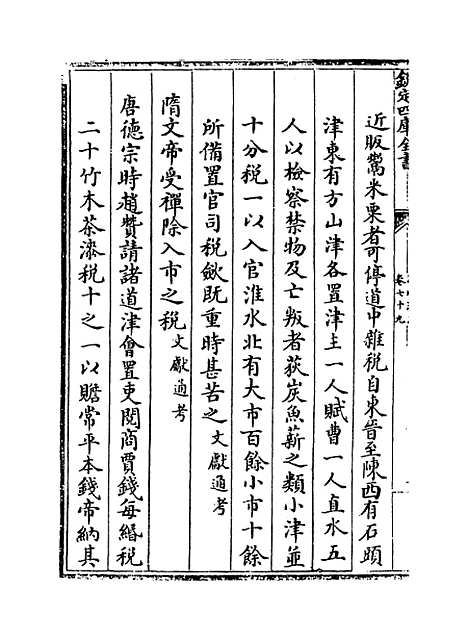 欽定四庫全書
卷七十九
近販鬻米粟者可停道中雜税自東晉至陳西有石頭
津東有方山津各置津主一人賊曹一人直水五
人以檢察禁物及亡叛者荻炭魚薪之類小津並
十分税一以入官淮水北有大市百餘小市十餘
所備置官司税斂既重時甚苦之文獻通考
隋文帝受禪除入市之税文獻通考
唐德宗時趙贊請諸道津會置吏閱商賈錢每緡税
二十竹木茶漆税十之一以贍常平本錢帝納其